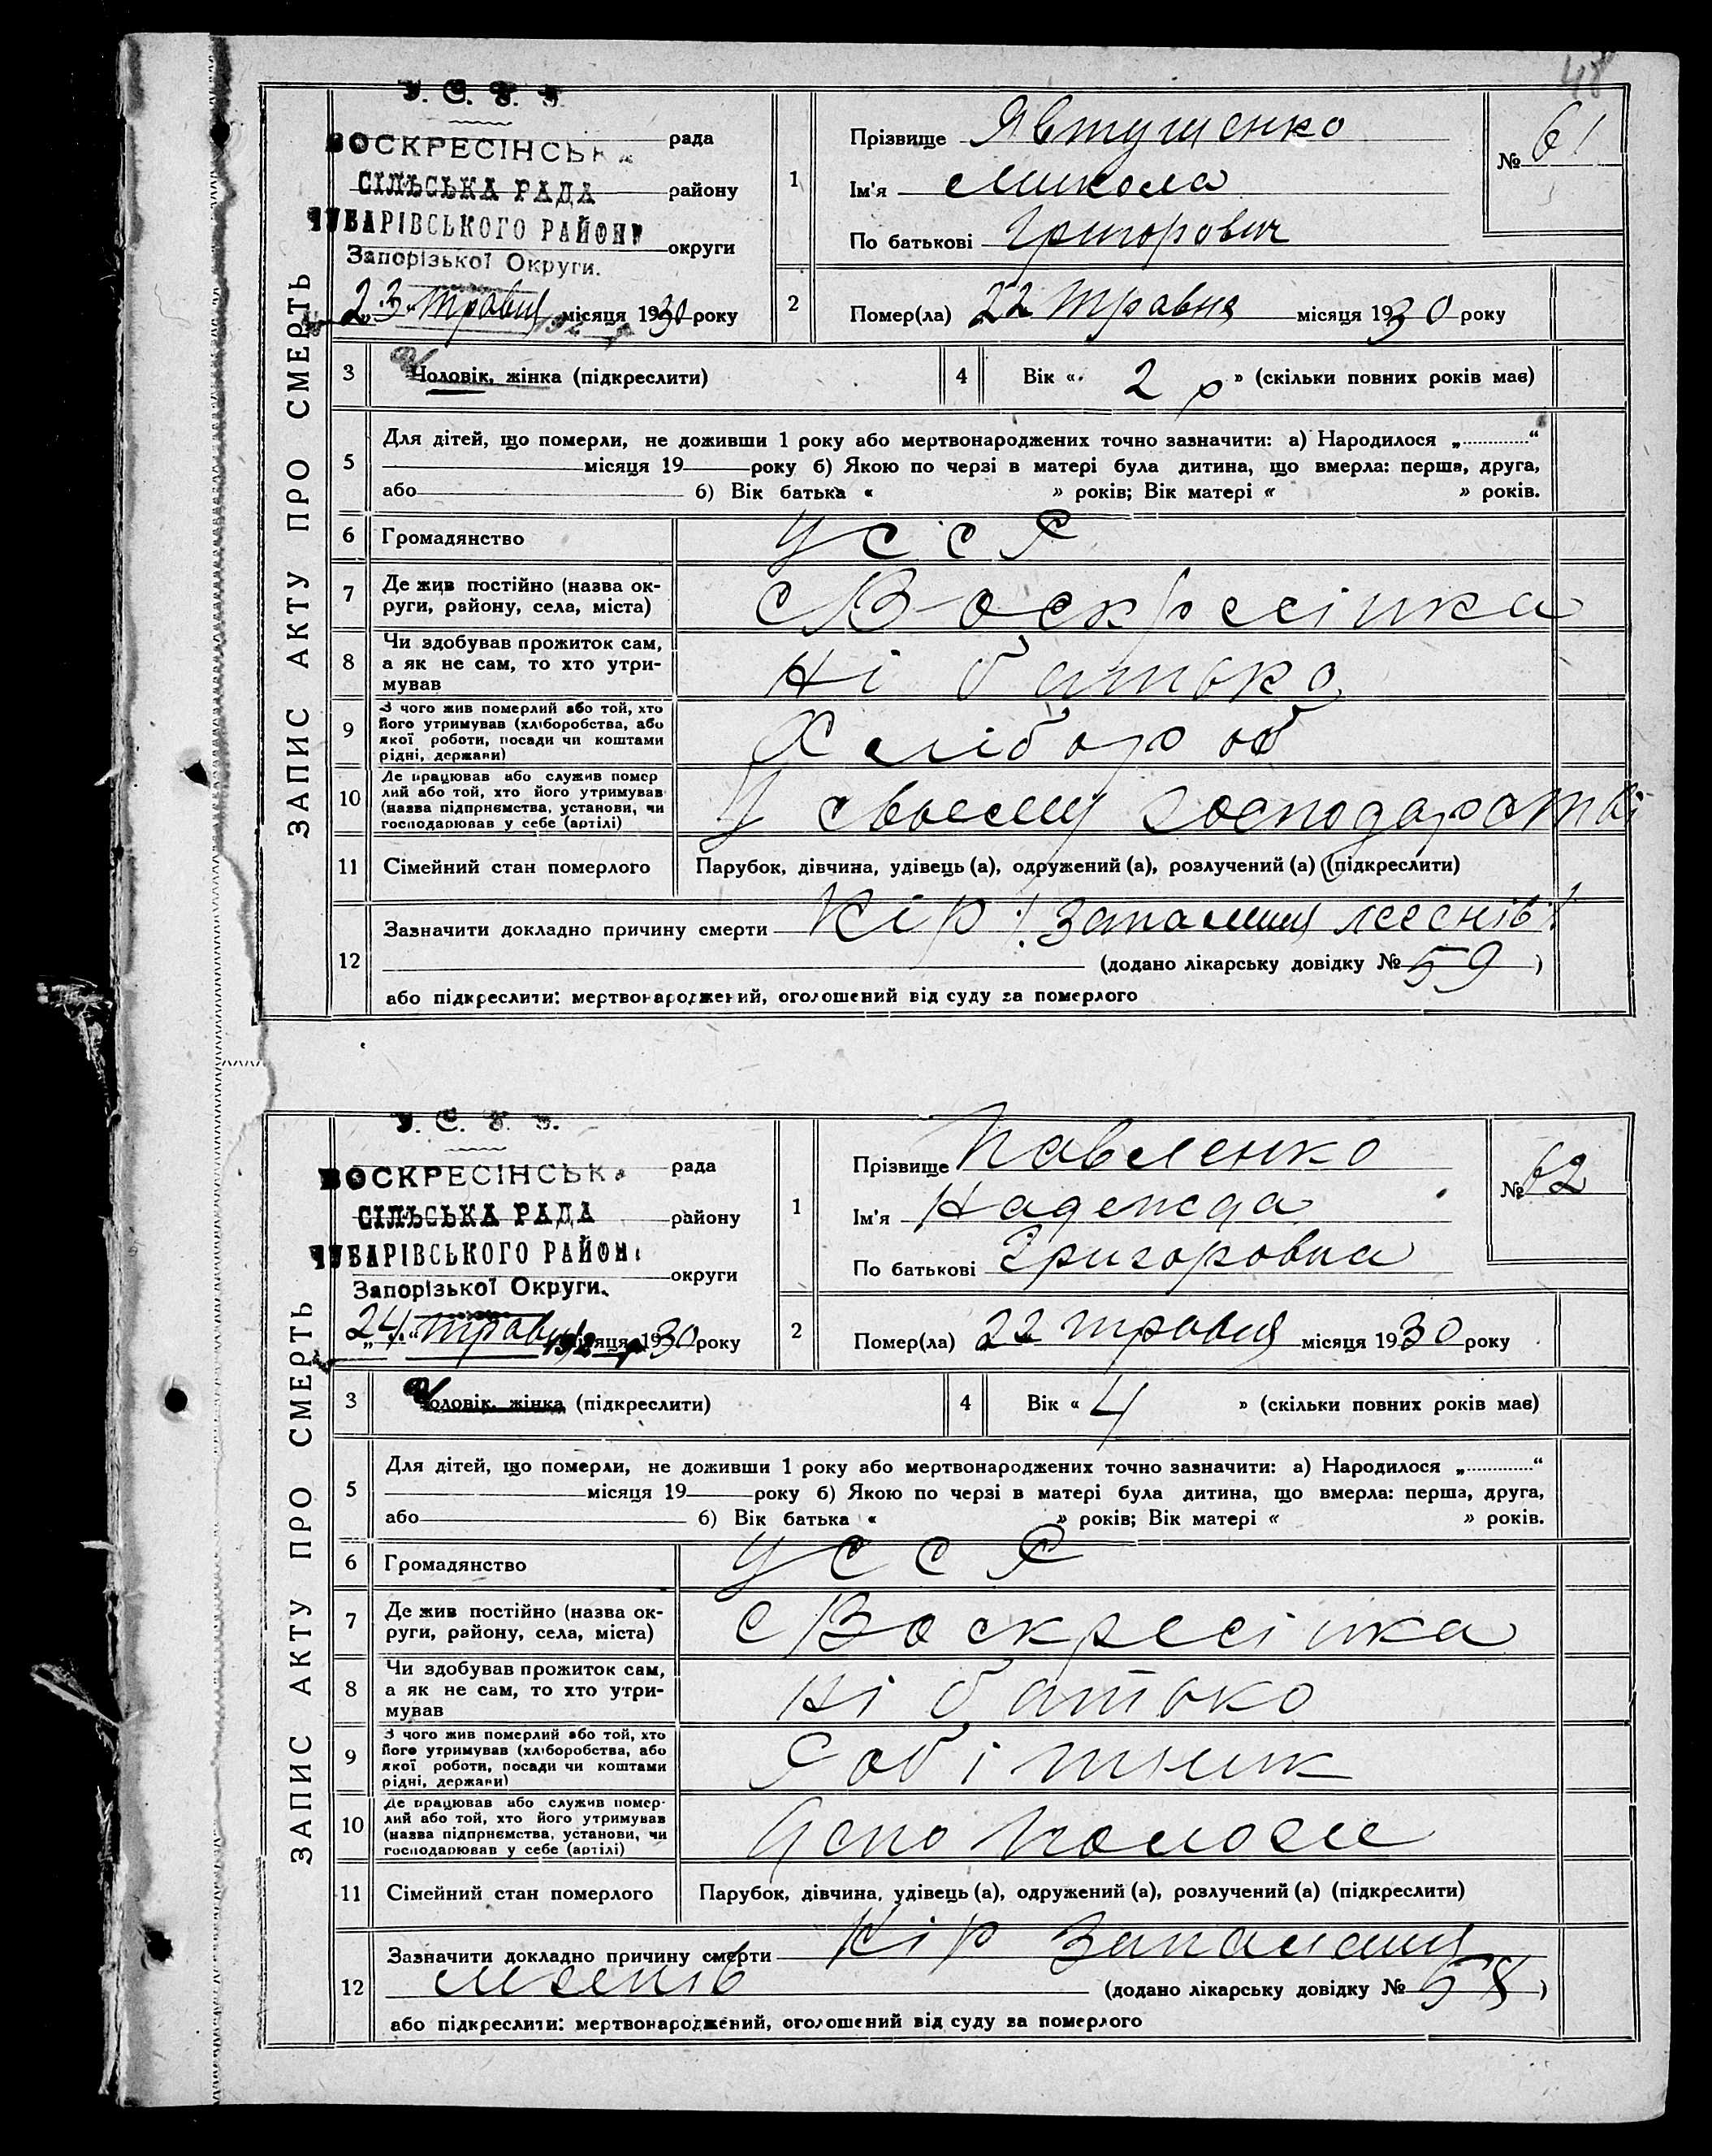 48
ЗАПИС АКТУ ПРО СМЕРТЬ
У. С. Р. Р.
ВОСКРЕСІНСЬКА рада
СІЛЬСЬКА РАДА району
ЧУБАРІВСЬКОГО РАЙОНУ
Запорізької Округи. округи
„23“ травня місяця 1930 року
1 Прізвище Явтушенко
Ім'я Микола
По батькові Григорович
№ 61
2 Помер(ла) 22 травня місяця 1930 року
3 Чоловік, жінка (підкреслити)
4 Вік « 2 р » (скільки повних років має)
5 Для дітей, що померли, не доживши 1 року або мертвонароджених точно зазначити: а) Народилося „..........“
місяця 19 року б) Якою по черзі в матері була дитина, що вмерла: перша, друга,
або б) Вік батька « » років; Вік матері « » років.
6 Громадянство УССР
7 Де жив постійно (назва ок-
руги, району, села, міста) с Воскресінка
8 Чи здобував прожиток сам,
а як не сам, то хто утри-
мував Ні батько
9 З чого жив померлий або той, хто
його утримував (хліборобства, або
якої роботи, посади чи коштами
рідні, держави) Хлібороб
10 Де працював або служив помер
лий або той, хто його утримував
(назва підприємства, установи, чи
господарював у себе (артілі) У своєму господарстві
11 Сімейний стан померлого Парубок, дівчина, удівець (а), одружений (а), розлучений (а) (підкреслити)
12 Зазначити докладно причину смерти Кір: запалиня легенів
(додано лікарську довідку № 59 )
або підкреслити: мертвонароджений, оголошений від суду за померлого
ЗАПИС АКТУ ПРО СМЕРТЬ
У. С. Р. Р.
ВОСКРЕСІНСЬКА рада
СІЛЬСЬКА РАДА району
ЧУБАРІВСЬКОГО РАЙОНУ
Запорізької Округи. округи
„24“ травня місяця 1930 року
1 Прізвище Павленко
Ім'я Надежда
По батькові Григоровна
№ 62
2 Помер(ла) 22 травня місяця 1930 року
3 Чоловік, жінка (підкреслити)
4 Вік « 4 » (скільки повних років має)
5 Для дітей, що померли, не доживши 1 року або мертвонароджених точно зазначити: а) Народилося „..........“
місяця 19 року б) Якою по черзі в матері була дитина, що вмерла: перша, друга,
або б) Вік батька « » років; Вік матері « » років.
6 Громадянство УССР
7 Де жив постійно (назва ок-
руги, району, села, міста) с Воскресінка
8 Чи здобував прожиток сам,
а як не сам, то хто утри-
мував Ні батько
9 З чого жив померлий або той, хто
його утримував (хліборобства, або
якої роботи, посади чи коштами
рідні, держави) Робітник
10 Де працював або служив помер-
лий або той, хто його утримував
(назва підприємства, установи, чи
господарював у себе (артілі)
11 Сімейний стан померлого Парубок, дівчина, удівець (а), одружений (а), розлучений (а) (підкреслити)
12 Зазначити докладно причину смерти Кір Запалання
легенів (додано лікарську довідку № 58 )
або підкреслити: мертвонароджений, оголошений від суду за померлого